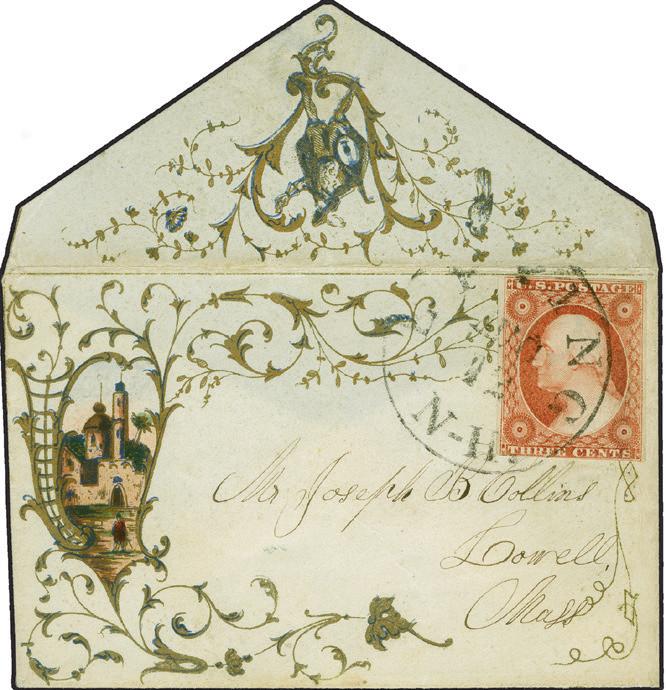 U.S. POSTAGE
THREE CENTS
N-H
Mr Joseph B Collins
Lowell,
Mass